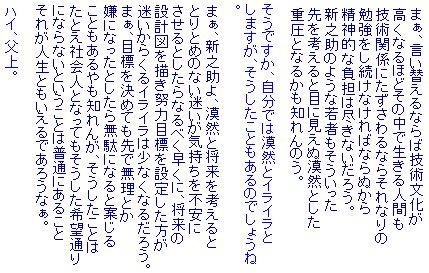 まぁ、言い替えるならば技術文化が
高くなるほどその中で生きる人間も
技術関係にたずさわるならそれなりの
勉強をし続けなければならぬから
精神的な負担は尽きないだろう。
新之助のような若者もそういった
先を考えると目に見えぬ漠然とした
重圧となるかも知れんのう。
そうですか、自分では漠然とイライラと
しますが、そうしたこともあるのでしょうね
。
まぁ、新之助よ、漠然と将来を考えると
とりとめのない迷いが気持ちを不安に
させるとしたらなるべく早くに、将来の
設計図を描き努力目標を設定した方が
迷いからくるイライラは少なくなるだろう。
まぁ、目標を決めても先で無理とか
嫌になったとしたら無駄になると案じる
こともあるやも知れんが、そうしたことは
たとえ社会人となってもそうした希望通り
にならないということは普通にあること
それが人生ともいえるであろうなぁ。
ハイ、父上。